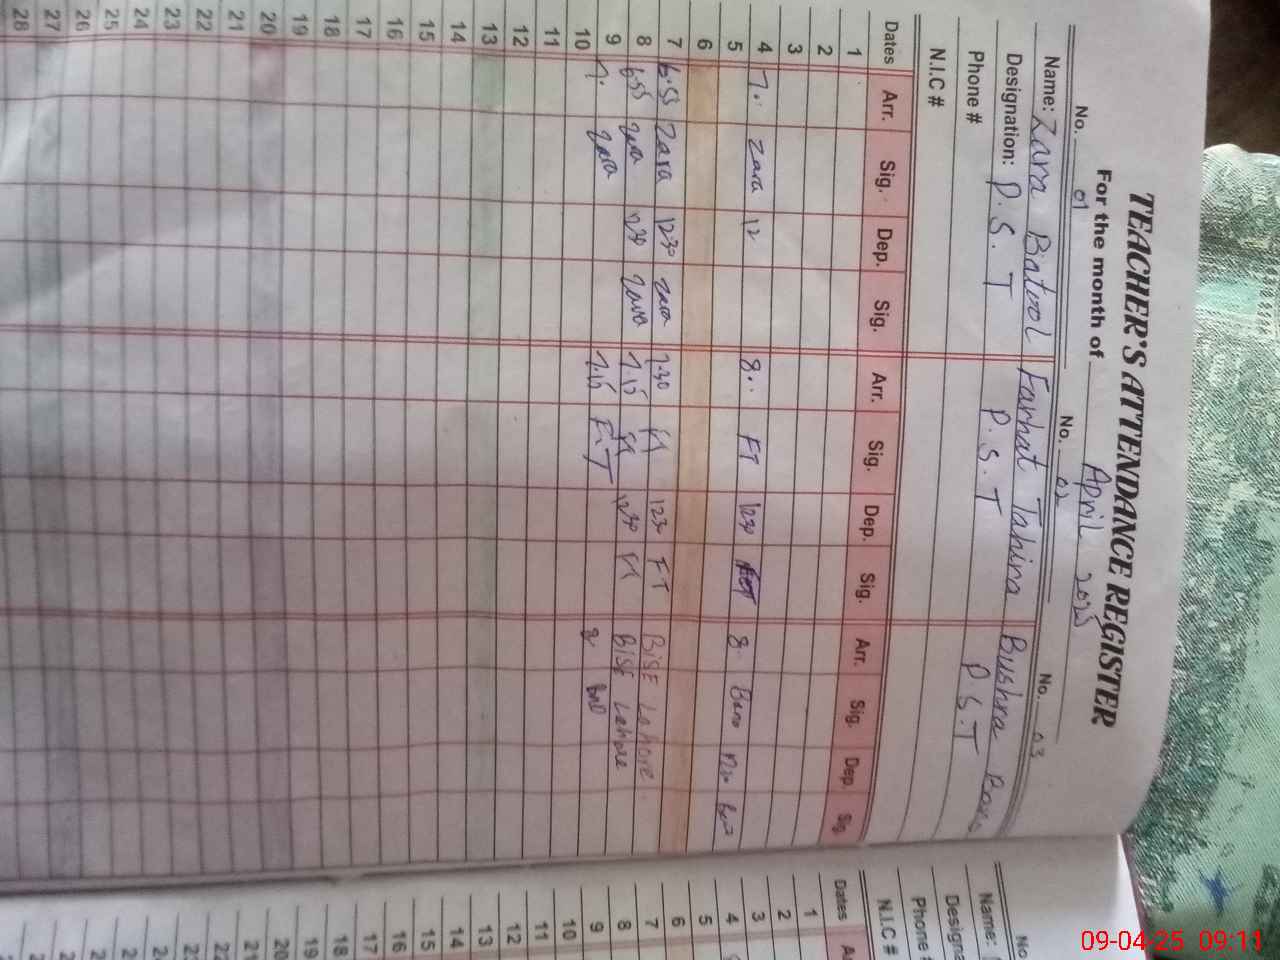 TEACHER'S ATTENDANCE REGISTER
For the month of April 2025
No. 01 No. 02 No. 03
Name: Zara Batool Farhat Tahira Bushra Bano
Designation: P.S.T P.S.T P.S.T
Phone #
N.I.C #
Dates Arr. Sig. Dep. Sig. Arr. Sig. Dep. Sig. Arr. Sig. Dep. Sig.
1
2
3
4 7.. Zara 12 8.. FT 1230 8.
5
6
7 6.55 Zara 1230 Zara 7.30 1230 FT BISE Lahore
8 6.55 Zara 1230 Zara 7.15 1230 BISE Lahore
9 7. Zara 7.15 F.T 8
10
11
12
13
14
15
16
17
18
19
20
21
22
23
24
25
26
27
28
No
Name:
Designa
Phone #
N.I.C #
Dates A
1
2
3
4
5
6
7
8
9
10
11
12
13
14
15
16
17
18
19
20
21
22
23
09-04-25 09:11